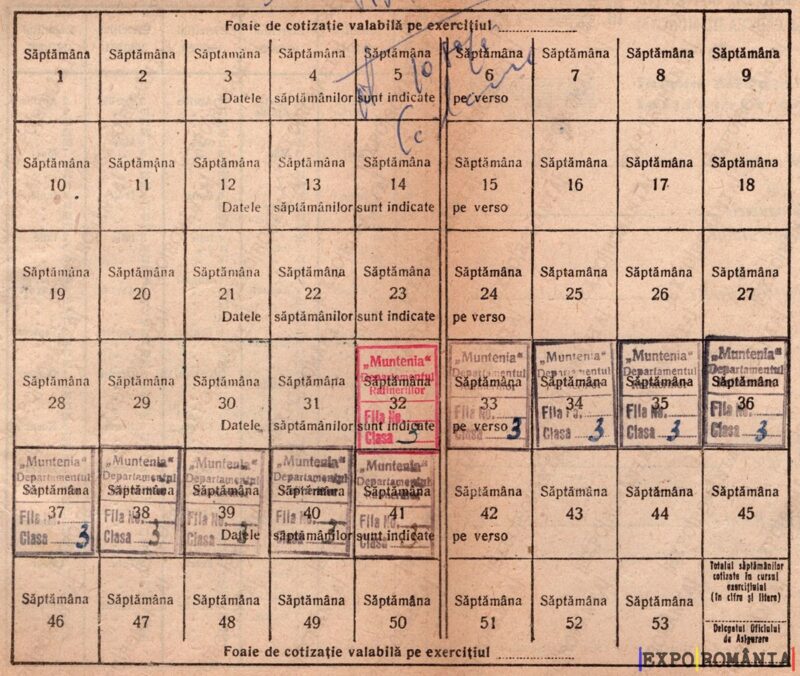 Foaie de cotizație valabilă pe exercițiul
Săptămâna Săptămâna Săptamâna Săptămâna Săptămâna Săptămâna Săptămâna Săptămâna Săptămâna
1 2 3 4 5 6 7 8 9
Datele săptămânilor sunt indicate pe verso
Săptămâna Săptămâna Săptămâna Săptămâna Săptămâna Săptămâna Săptămâna Săptămâna Săptămâna
10 11 12 13 14 15 16 17 18
Datele săptămânilor sunt indicate pe verso
Săptămâna Săptămâna Săptămâna Săptămâna Săptămâna Săptămâna Săptamâna Săptămâna Săptămâna
19 20 21 22 23 24 25 26 27
Datele săptămânilor sunt indicate pe verso
„Muntenia" „Muntenia" „Muntenia" „Muntenia" „Muntenia"
Departamentul Departamentul Departamentul Departamentul Departamentul
Săptămâna Săptămâna Săptămâna Săptămâna Săptămâna Săptămâna Săptămâna Săptămâna Săptămâna
Rafineriilor
28 29 30 31 32 33 34 35 36
Fila No. Fila No. Fila No. Fila No. Fila No.
Datele săptămânilor sunt indicate pe verso
Clasa 3 Clasa 3 Clasa 3 Clasa 3 Clasa 3
„Muntenia" „Muntenia" „Muntenia" „Muntenia" „Muntenia"
Departamentul Departamentul Departamentul Departamentul Departamentul
Săptămâna Săptămâna Săptămâna Săptămâna Săptămâna Săptămâna Săptămâna Săptămâna Săptămâna
37 38 39 40 41 42 43 44 45
Fila No. Fila No. Fila No. Fila No. Fila No.
Datele săptămânilor sunt indicate pe verso
Clasa 3 Clasa 3 Clasa 3 Clasa 3 Clasa 3
Săptămâna Săptămâna Săptămâna Săptămâna Săptămâna Săptămâna Săptămâna Săptămâna
46 47 48 49 50 51 52 53
Totalul săptămânilor
cotizate în cursul
exercițiului
(în cifre și litere)
Delegatul Oficiului
de Asigurare
Foaie de cotizație valabilă pe exercițiul
EXPO ROMÂNIA